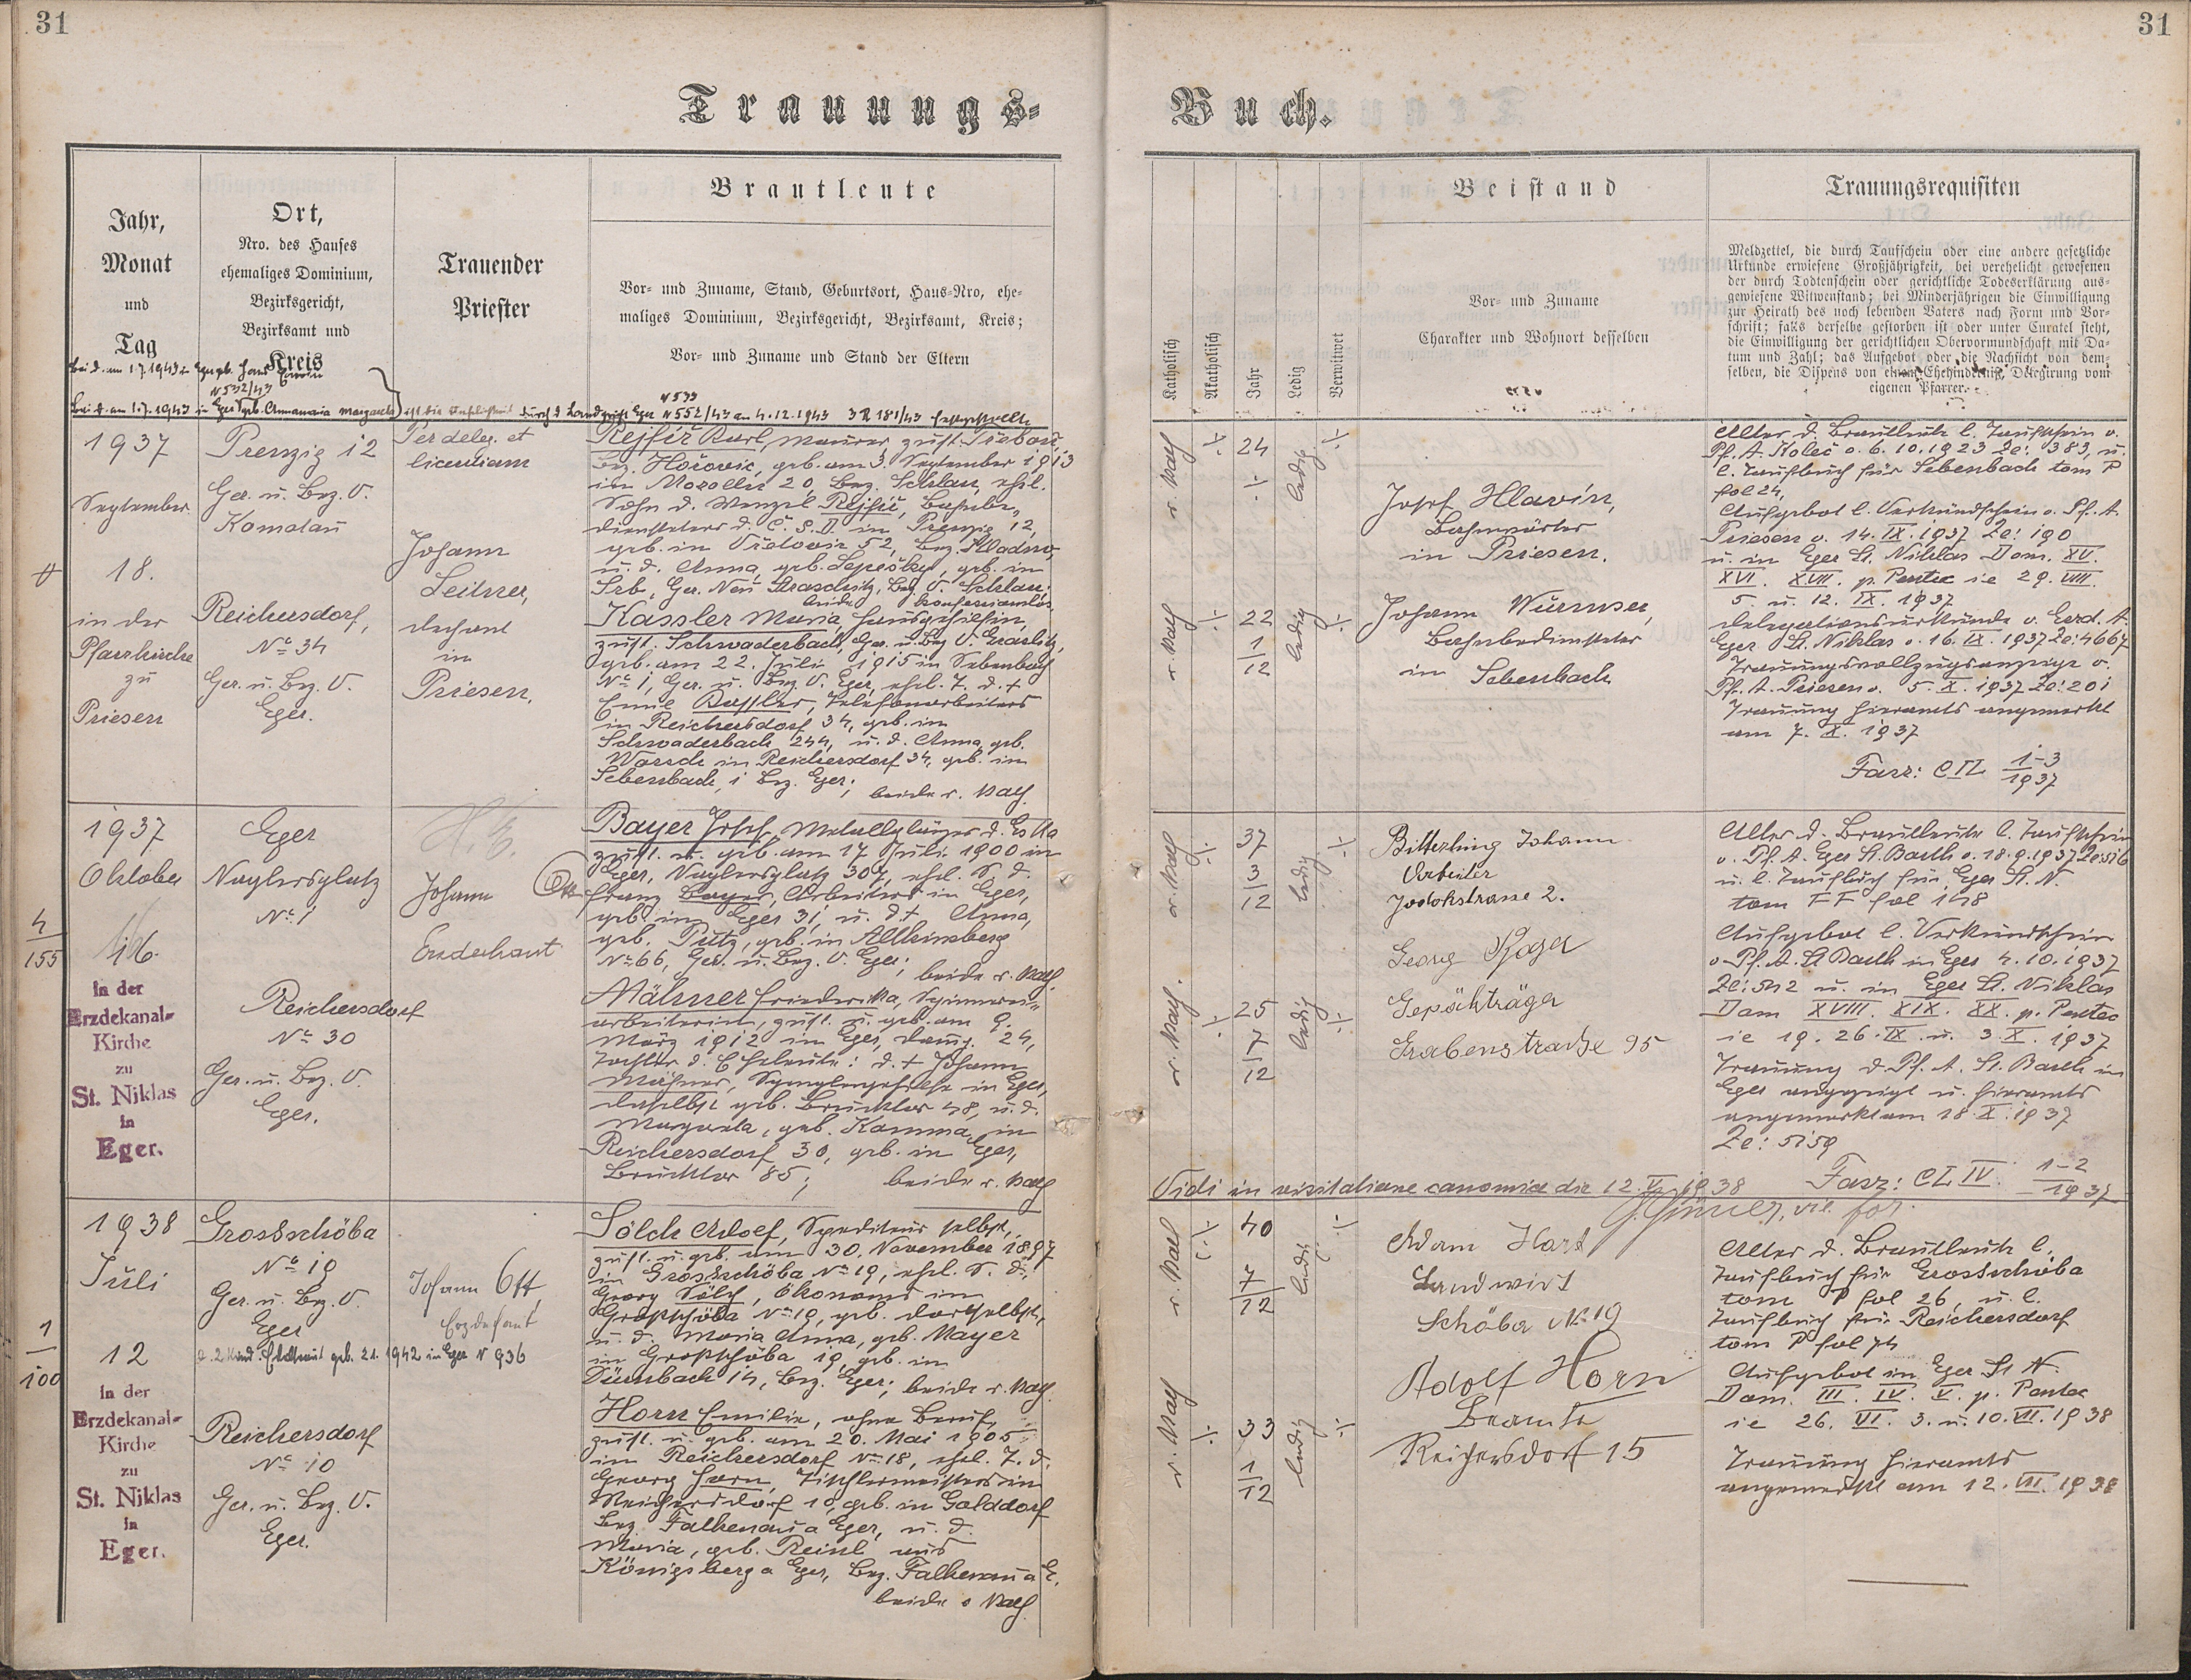 31
Trauungs-
Jahr,
Monat
und
Tag
Ort,
Nro. des Hauses
ehemaliges Dominium,
Bezirksgericht,
Bezirksamt und
Kreis
Trauender
Priester
Brautleute
Vor- und Zuname, Stand, Geburtsort, Haus-Nro, ehe-
maliges Dominium, Bezirksgericht, Bezirksamt, Kreis;
Vor- und Zuname und Stand der Eltern
N 532/43
N 533
1937
September
18.
in der
Pfarrkirche
zu
Priesen
Prenzig 12
Ger. u. Bez. V.
Komotau
Reichersdorf,
No 34
Ger. u. Bez. V.
Eger.
Per deleg. et
licentiam
Johann
Leitner,
Dechant
in
Priesen.
Rejfíř Karl, Maurer, zust.
Bez. Hořovic, geb. am 3. September 1913
in 20, Bez. Schlan, ehel.
Sohn d. Wenzel Rejfíř, Bahnbe-
diensteters d. Č. S. D. in Prenzig 12,
geb. in 52, Bez. Kladno
u. d. Anna, geb. geb. in
Srb, Ger. Neu Straschitz, Bez. V. Schlan;
Kassler Maria Hausgehilfin,
zust. Schwaderbach, Ger. u. Bez. V. Graslitz,
geb. am 22. Juli 1915 in Sebenbach
No 1, Ger. u. Bez. V. Eger, ehel. T. d. +
Emil Kassler,
in Reichersdorf 34, geb. in
Schwaderbach 244, u. d. Anna, geb.
in Reichersdorf 34, geb. in
Sebenbach, 1 Bez. Eger;
beide r. kath.
1937
Oktober
16.
4
155
in der
Erzdekanal-
Kirche
zu
St. Niklas
in
Eger.
Eger
No 1
Reichersdorf
No 30
Ger. u. Bez. V.
Eger.
Johann Ott
Erzdechant
Bayer Josef,
zust. u. geb. am 17. Juli 1900 in
Eger, 307, ehel. S. d.
Franz Bayer, Arbeiters in Eger,
geb. in Eger 31, u. d. + Anna,
geb. Pütz, geb. in Altkinsberg
No 66, Ger. u. Bez. V. Eger;
beide r. kath.
Mähner Friederika, Spinnerei-
arbeiterin, zust. u. geb. am 9.
März 1912 in Eger, 24,
Tochter d. Eheleute: d. + Johann
Mähner, in Eger,
daselbst geb. Brucktor 48, u. d.
Margareta, geb. Kamma, in
Reichersdorf 30, geb. in Eger,
Brucktor 85;
beide r. kath.
1938
Juli
12
1
100
in der
Erzdekanal-
Kirche
zu
St. Niklas
in
Eger.
Grossschöba
No 19
Ger. u. Bez. V.
Eger
Reichersdorf
No 10
Ger. u. Bez. V.
Eger.
Johann Ott
Erzdechant
Sölch Adolf, Spediteur selbst,
zust. u. geb. am 30. November 1897
in Grossschöba No 19, ehel. S. d.
Georg Sölch, Ökonoms in
Grossschöba No 19, geb. dortselbst,
u. d. Maria Anna, geb. Mayer
in Grossschöba 19, geb. in
14, Bez. Eger; beide r. kath.
Horn Emilie, ohne Beruf,
zust. u. geb. am 20. Mai 1905
in Reichersdorf No 18, ehel. T. d.
Georg Horn, Tischlermeisters in
Reichersdorf 10, geb. in Golddorf
Bez. Falkenau a Eger, u. d.
Maria, geb. Reinl aus
Königsberg a Eger, Bez. Falkenau a E.
beide r. kath.
31
Buch.
Katholisch
Akatholisch
Jahr
Ledig
Verwitwet
Beistand
Vor- und Zuname
Charakter und Wohnort desselben
Trauungsrequisiten
Meldzettel, die durch Taufschein oder eine andere gesetzliche
Urkunde erwiesene Großjährigkeit, bei verehelicht gewesenen
der durch Todtenschein oder gerichtliche Todeserklärung aus-
gewiesene Witwenstand; bei Minderjährigen die Einwilligung
zur Heirath des noch lebenden Vaters nach Form und Vor-
schrift; falls derselbe gestorben ist oder unter Curatel steht,
die Einwilligung der gerichtlichen Obervormundschaft mit Da-
tum und Zahl; das Aufgebot oder die Nachsicht von dem-
selben, die Dispens von einem Ehehindernis, Delegirung vom
eigenen Pfarrer.
r. kath
24
ledig
r. kath
22
1
12
ledig
Josef Hlavín,
Bahnwärter
in Priesen.
Johann
Bahnbediensteter
in Sebenbach
Alter d. Brautleute l. Taufschein v.
Pf. A. Koleč v. 6. 10. 1923 Ze: 383, u.
l. Taufbuch für Sebenbach tom P
fol 24,
Aufgebot l. Verkündschein v. Pf. A.
Priesen v. 14. IX. 1937 Ze: 190
u. in Eger St. Niklas Dom. XV.
XVI. XVII. p. Pentec ie 29. VIII.
5. u. 12. IX. 1937
Delegationsurkunde v. Erzd. A.
Eger St. Niklas v. 16. IX. 1937 Ze: 4667
Trauungsvollzugsanzeige v.
Pf. A. Priesen v. 5. X. 1937 Ze: 201
Trauung hieramts angemerkt
am 7. X. 1937
1-3
1937
r. kath
37
3
12
ledig
r. kath.
25
7
12
ledig
Bitterling Johann
Arbeiter
Jodokstrasse 2.
Georg
Gepäkträger
Grabenstraße 95
Alter d. Brautleute l. Taufschein
v. Pf. A. Eger St. Barth v. 18. 9. 1937
u. l. Taufbuch für Eger St. N.
tom FF fol 148
Aufgebot l. Verkündschein
v. Pf. A. St Barth in Eger 4. 10. 1937
Ze: 542 u. in Eger St. Niklas
Dom XVIII. XIX. XX. p. Pentec
ie 19. 26. IX. u. 3. X. 1937
Trauung d. Pf. A. St. Barth in
Eger angezeigt u. hieramts
angemerkt am 18. X. 1937
Ze: 5159
1-2
1937
Vidi in visitatione canonica die 12. V. 1938
r. kath
40
7
12
ledig
r. kath
33
1
12
ledig
Adam Hart
Landwirt
Schöba No 19
Adolf Horn
Beamte
Reichersdorf 15
Alter d. Brautleute l.
Taufbuch für Grossschöba
tom P fol 26, u. l.
Taufbuch für Reichersdorf
tom P fol 74
Aufgebot in Eger St N.
Dom. III. IV. V. p. Pentec
ie 26. VI. 3. u. 10. VII. 1938
Trauung hieramts
angemerkt am 12. VII. 1938